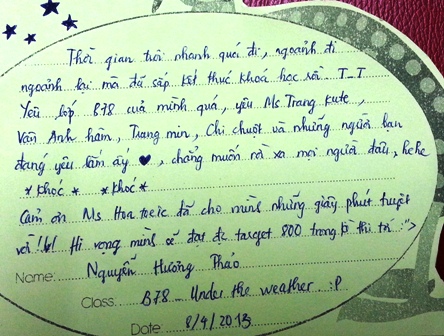 Thời gian trôi nhanh quá đi, ngoảnh đi
ngoảnh lại mà đã sắp kết thúc khoá học rồi. T_T
Yêu lớp B78 của mình quá, yêu Ms Trang kute,
Vân Anh hâm, Trang min, Chi chuột và những người bạn
đáng yêu lắm ấy ♥, chẳng muốn rời xa mọi người đâu, hehe
* khóc * * khóc *
Cảm ơn Ms Hoa toeic đã cho mình những giây phút tuyệt
vời !!! Hi vọng mình sẽ đạt đc target 800 trong kì thi tới :">
Name: Nguyễn Hương Thảo
Class: B78 - Under the weather :P
Date: 8/4/2013